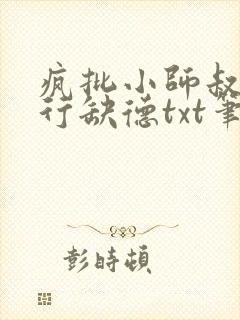 疯批小師叔
行缺德txt筆
彭時頓